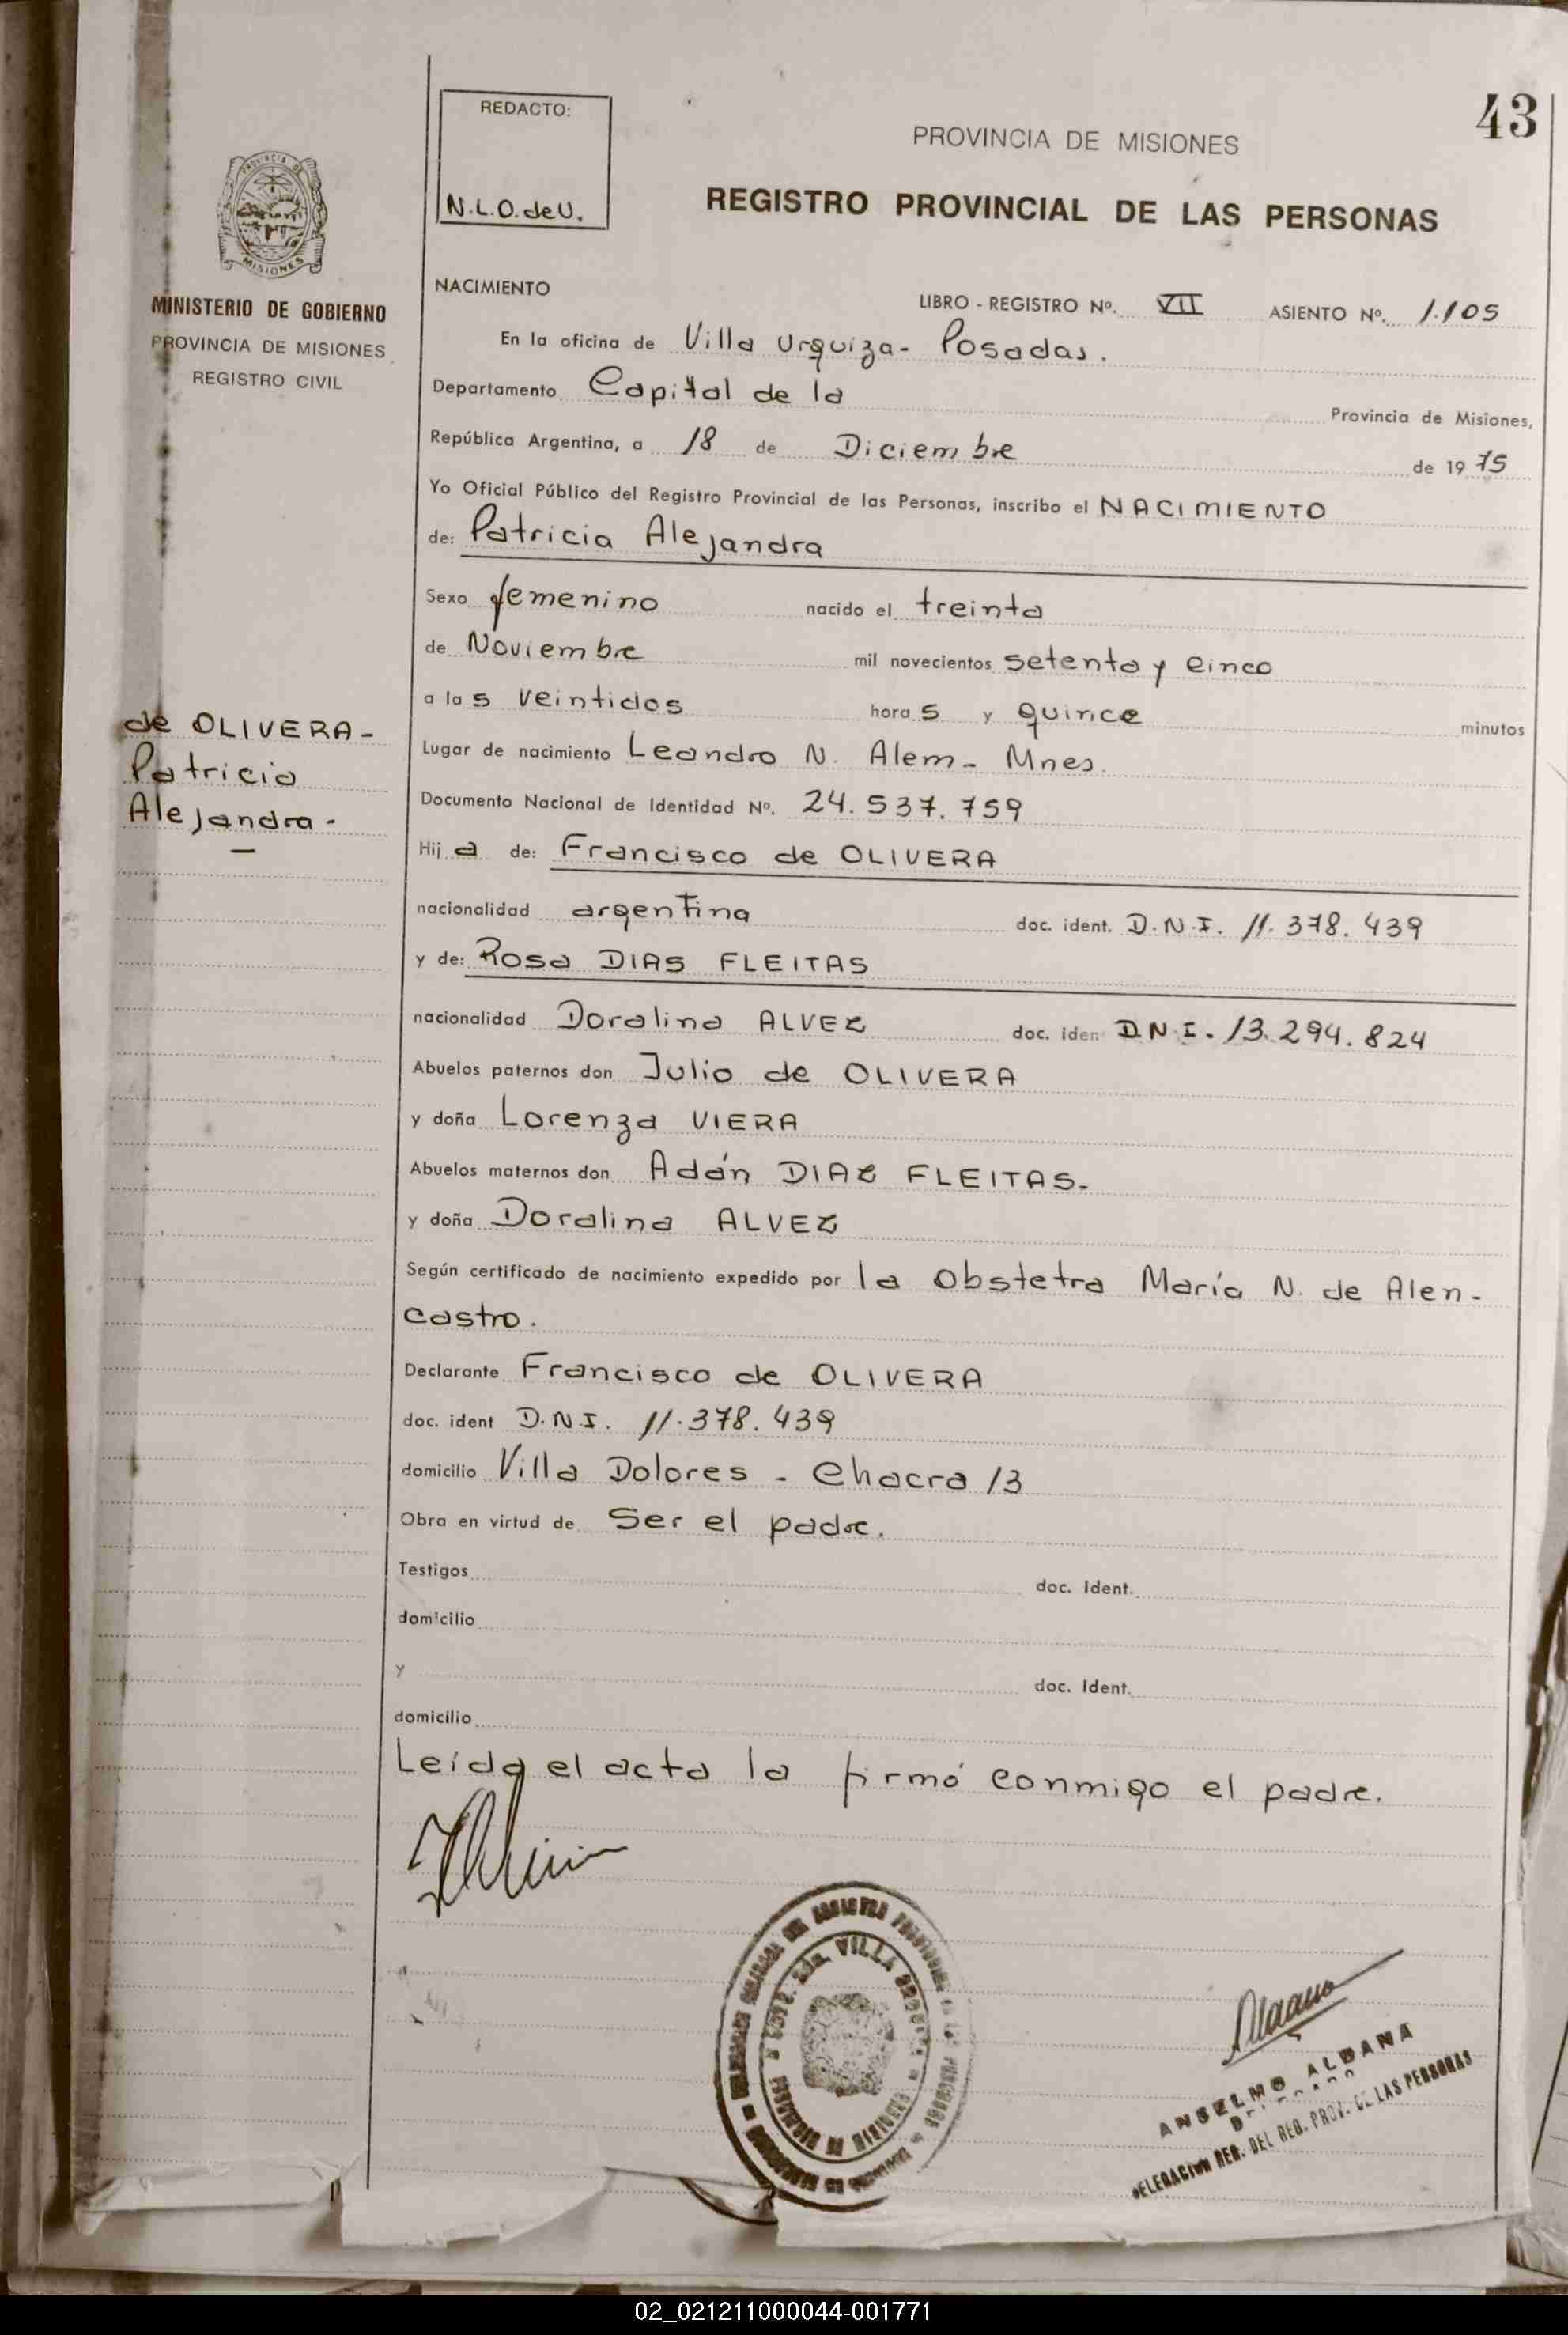 43
REDACTO:
N.L.O.deU.
PROVINCIA DE MISIONES
REGISTRO PROVINCIAL DE LAS PERSONAS
PROVINCIA DE
MISIONES
MINISTERIO DE GOBIERNO
PROVINCIA DE MISIONES
REGISTRO CIVIL
de OLIVERA-
Patricia
Alejandra-
NACIMIENTO LIBRO - REGISTRO Nº. VII ASIENTO Nº. 1.105
En la oficina de Villa Urquiza- Posadas.
Departamento Capital de la Provincia de Misiones,
República Argentina, a 18 de Diciembre de 1975
Yo Oficial Público del Registro Provincial de las Personas, inscribo el NACIMIENTO
de: Patricia Alejandra
Sexo femenino nacido el treinta
de Noviembre mil novecientos setenta y cinco
a las veintidos horas y quince minutos
Lugar de nacimiento Leandro N. Alem- Mnes.
Documento Nacional de Identidad Nº. 24.537.759
Hija de: Francisco de OLIVERA
nacionalidad argentina doc. ident. D.N.I. 11.378.439
y de: Rosa DIAS FLEITAS
nacionalidad Doralina ALVEZ doc. iden D.N.I. 13.294.824
Abuelos paternos don Julio de OLIVERA
y doña Lorenza VIERA
Abuelos maternos don Adán DIAZ FLEITAS.
y doña Doralina ALVEZ
Según certificado de nacimiento expedido por la Obstetra María N. de Alen-
castro.
Declarante Francisco de OLIVERA
doc. ident D.N.I. 11.378.439
domicilio Villa Dolores - Chacra 13
Obra en virtud de Ser el padre.
Testigos doc. Ident.
domicilio
y doc. Ident.
domicilio
Leída el acta la firmó conmigo el padre.
VILLA
ANSELMO ALDANA
DELEGACION REG. DEL REG. PROV. DE LAS PERSONAS
02_021211000044-001771